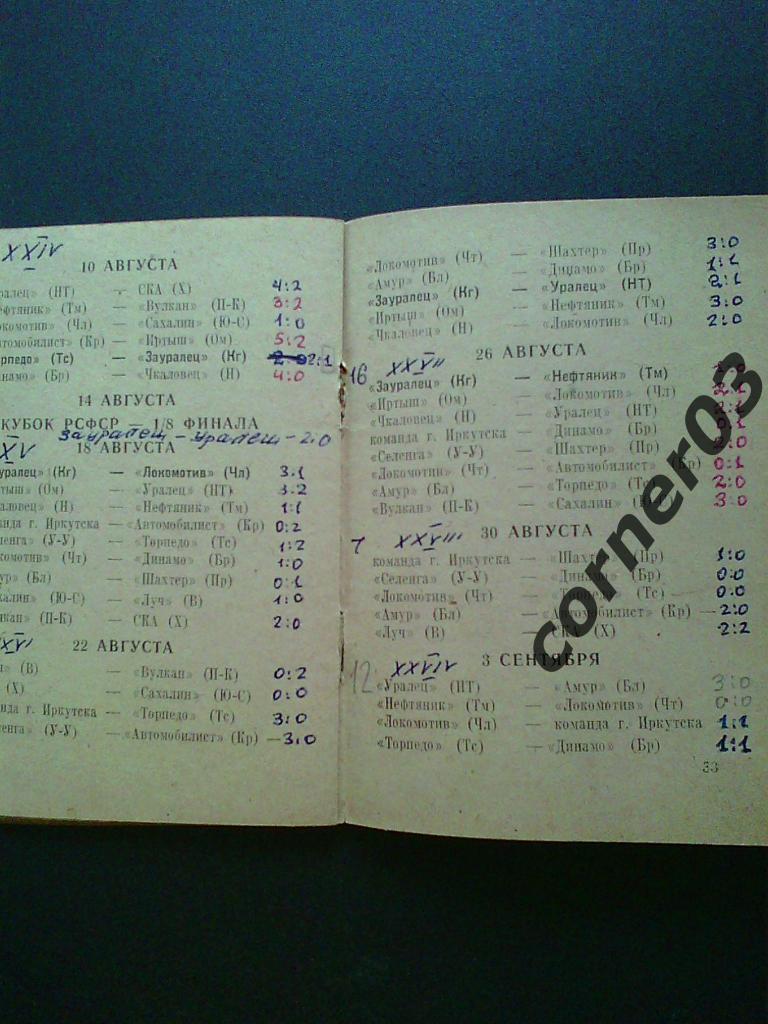 XXIV
10 АВГУСТА
уралец» (НТ) — СКА (Х) 4:2
Нефтяник» (Тм) — «Вулкан» (П-К) 3:2
локомотив» (Чл) — «Сахалин» (Ю-С) 1:0
автомобилист» (Кр) — «Иртыш» (Ом) 5:2
торпедо» (Тс) — «Зауралец» (Кг) 2:1
динамо» (Бр) — «Чкаловец» (Н) 4:0
14 АВГУСТА
КУБОК РСФСР — 1/8 ФИНАЛА
Зауралец - Уралец - 2:0
XXV
18 АВГУСТА
уралец» (Кг) — «Локомотив» (Чл) 3:1
ртыш» (Ом) — «Уралец» (НТ) 3:2
каловец» (Н) — «Нефтяник» (Тм) 1:1
манда г. Иркутска —«Автомобилист» (Кр) 0:2
ленга» (У-У) — «Торпедо» (Тс) 1:2
окомотив» (Чт) — «Динамо» (Бр) 1:0
мур» (Бл) — «Шахтер» (Пр) 0:1
халин» (Ю-С) — «Луч» (В) 1:0
лкан» (П-К) — СКА (Х) 2:0
XXVI
22 АВГУСТА
(В) — «Вулкан» (П-К) 0:2
(Х) — «Сахалин» (Ю-С) 0:0
нда г. Иркутска — «Торпедо» (Тс) 3:0
енга» (У-У) —«Автомобилист» (Кр) — 3:0
«Локомотив» (Чт) — «Шахтер» (Пр) 3:0
«Амур» (Бл) — «Динамо» (Бр) 1:1
«Зауралец» (Кг) — «Уралец» (НТ) 2:1
«Иртыш» (Ом) — «Нефтяник» (Тм) 3:0
«Чкаловец» (Н) — «Локомотив» (Чл) 2:0
16 XXVII
26 АВГУСТА
«Зауралец» (Кг) — «Нефтяник» (Тм)
«Иртыш» (Ом) — «Локомотив» (Чл) 2:1
«Чкаловец» (Н) — «Уралец» (НТ) 2:1
команда г. Иркутска — «Динамо» (Бр) 0:1
«Селенга» (У-У) — «Шахтер» (Пр) 2:0
«Локомотив» (Чт) — «Автомобилист» (Кр) 0:1
«Амур» (Бл) — «Торпедо» (Тс) 2:0
«Вулкан» (П-К) — «Сахалин» (Ю-С) 3:0
7 XXVIII
30 АВГУСТА
команда г. Иркутска — «Шахтер» (Пр) 1:0
«Селенга» (У-У) — «Динамо» (Бр) 0:0
«Локомотив» (Чт) — «Торпедо» (Тс) 0:0
«Амур» (Бл) — «Автомобилист» (Кр) — 2:0
«Луч» (В) — СКА (Х) 2:2
12 XXVIV
3 СЕНТЯБРЯ
«Уралец» (НТ) — «Амур» (Бл) 3:0
«Нефтяник» (Тм) — «Локомотив» (Чт) 0:0
«Локомотив» (Чл) — команда г. Иркутска 1:1
«Торпедо» (Тс) — «Динамо» (Бр) 1:1
33
corner03